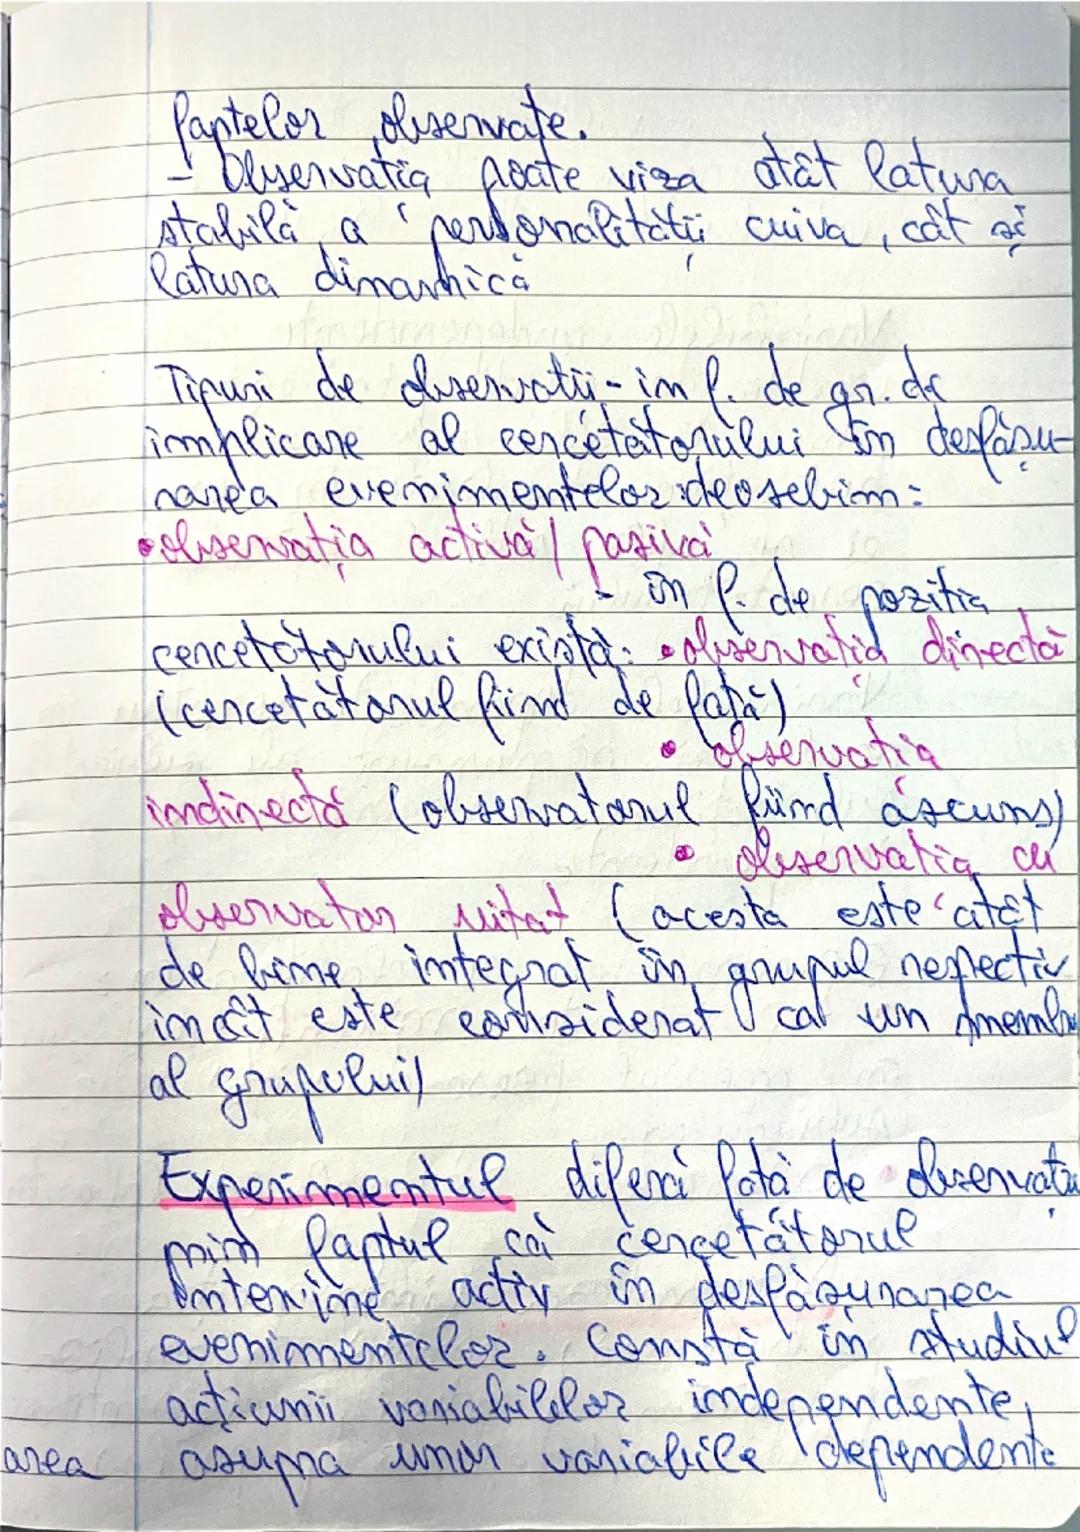 faptelor observate.
- Observația poate viza atât latura
stabilă a personalității cuiva, cât și
latura dinamică
Tipuri de observații - în f. de gr. de
implicare al cercetătorului în desfășu-
rarea evenimentelor deosebim:
• observația activă/ pasivă
- în f. de poziția
cercetătorului există: • observația directă
(cercetătorul fiind de față)
• observația
indirectă (observatorul fiind ascuns)
• observația cu
observator uitat (acesta este atât
de bine integrat în grupul respectiv
încât este considerat ca un membru
al grupului)
Experimentul diferă față de observația
prin faptul că cercetătorul
intervine activ în desfășurarea
evenimentelor. Constă în studiul
acțiunii variabilelor independente,
area asupra unor variabile dependente